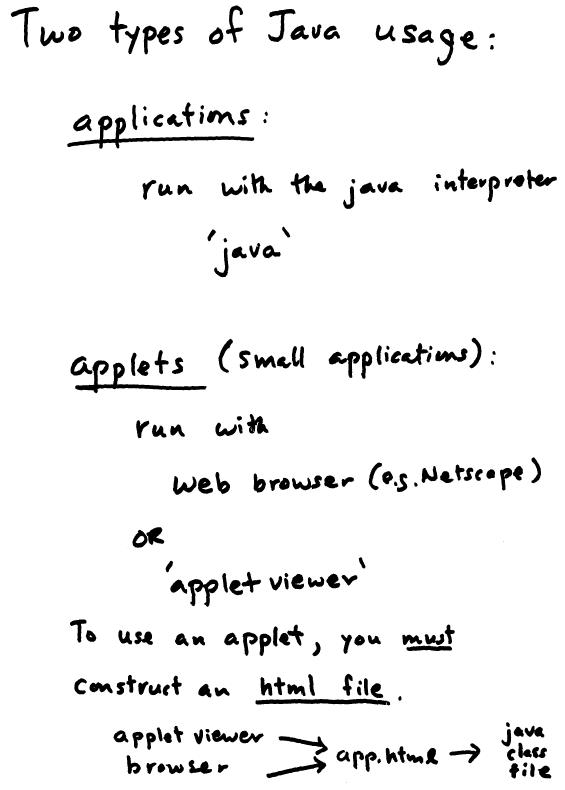 Two types of Java usage:
applications:
run with the java interpreter
'java'
applets (small applications):
run with
web browser (e.g. Netscape)
OR
'applet viewer'
To use an applet, you must
construct an html file.
applet viewer
browser
→ app.html →
java
class
file